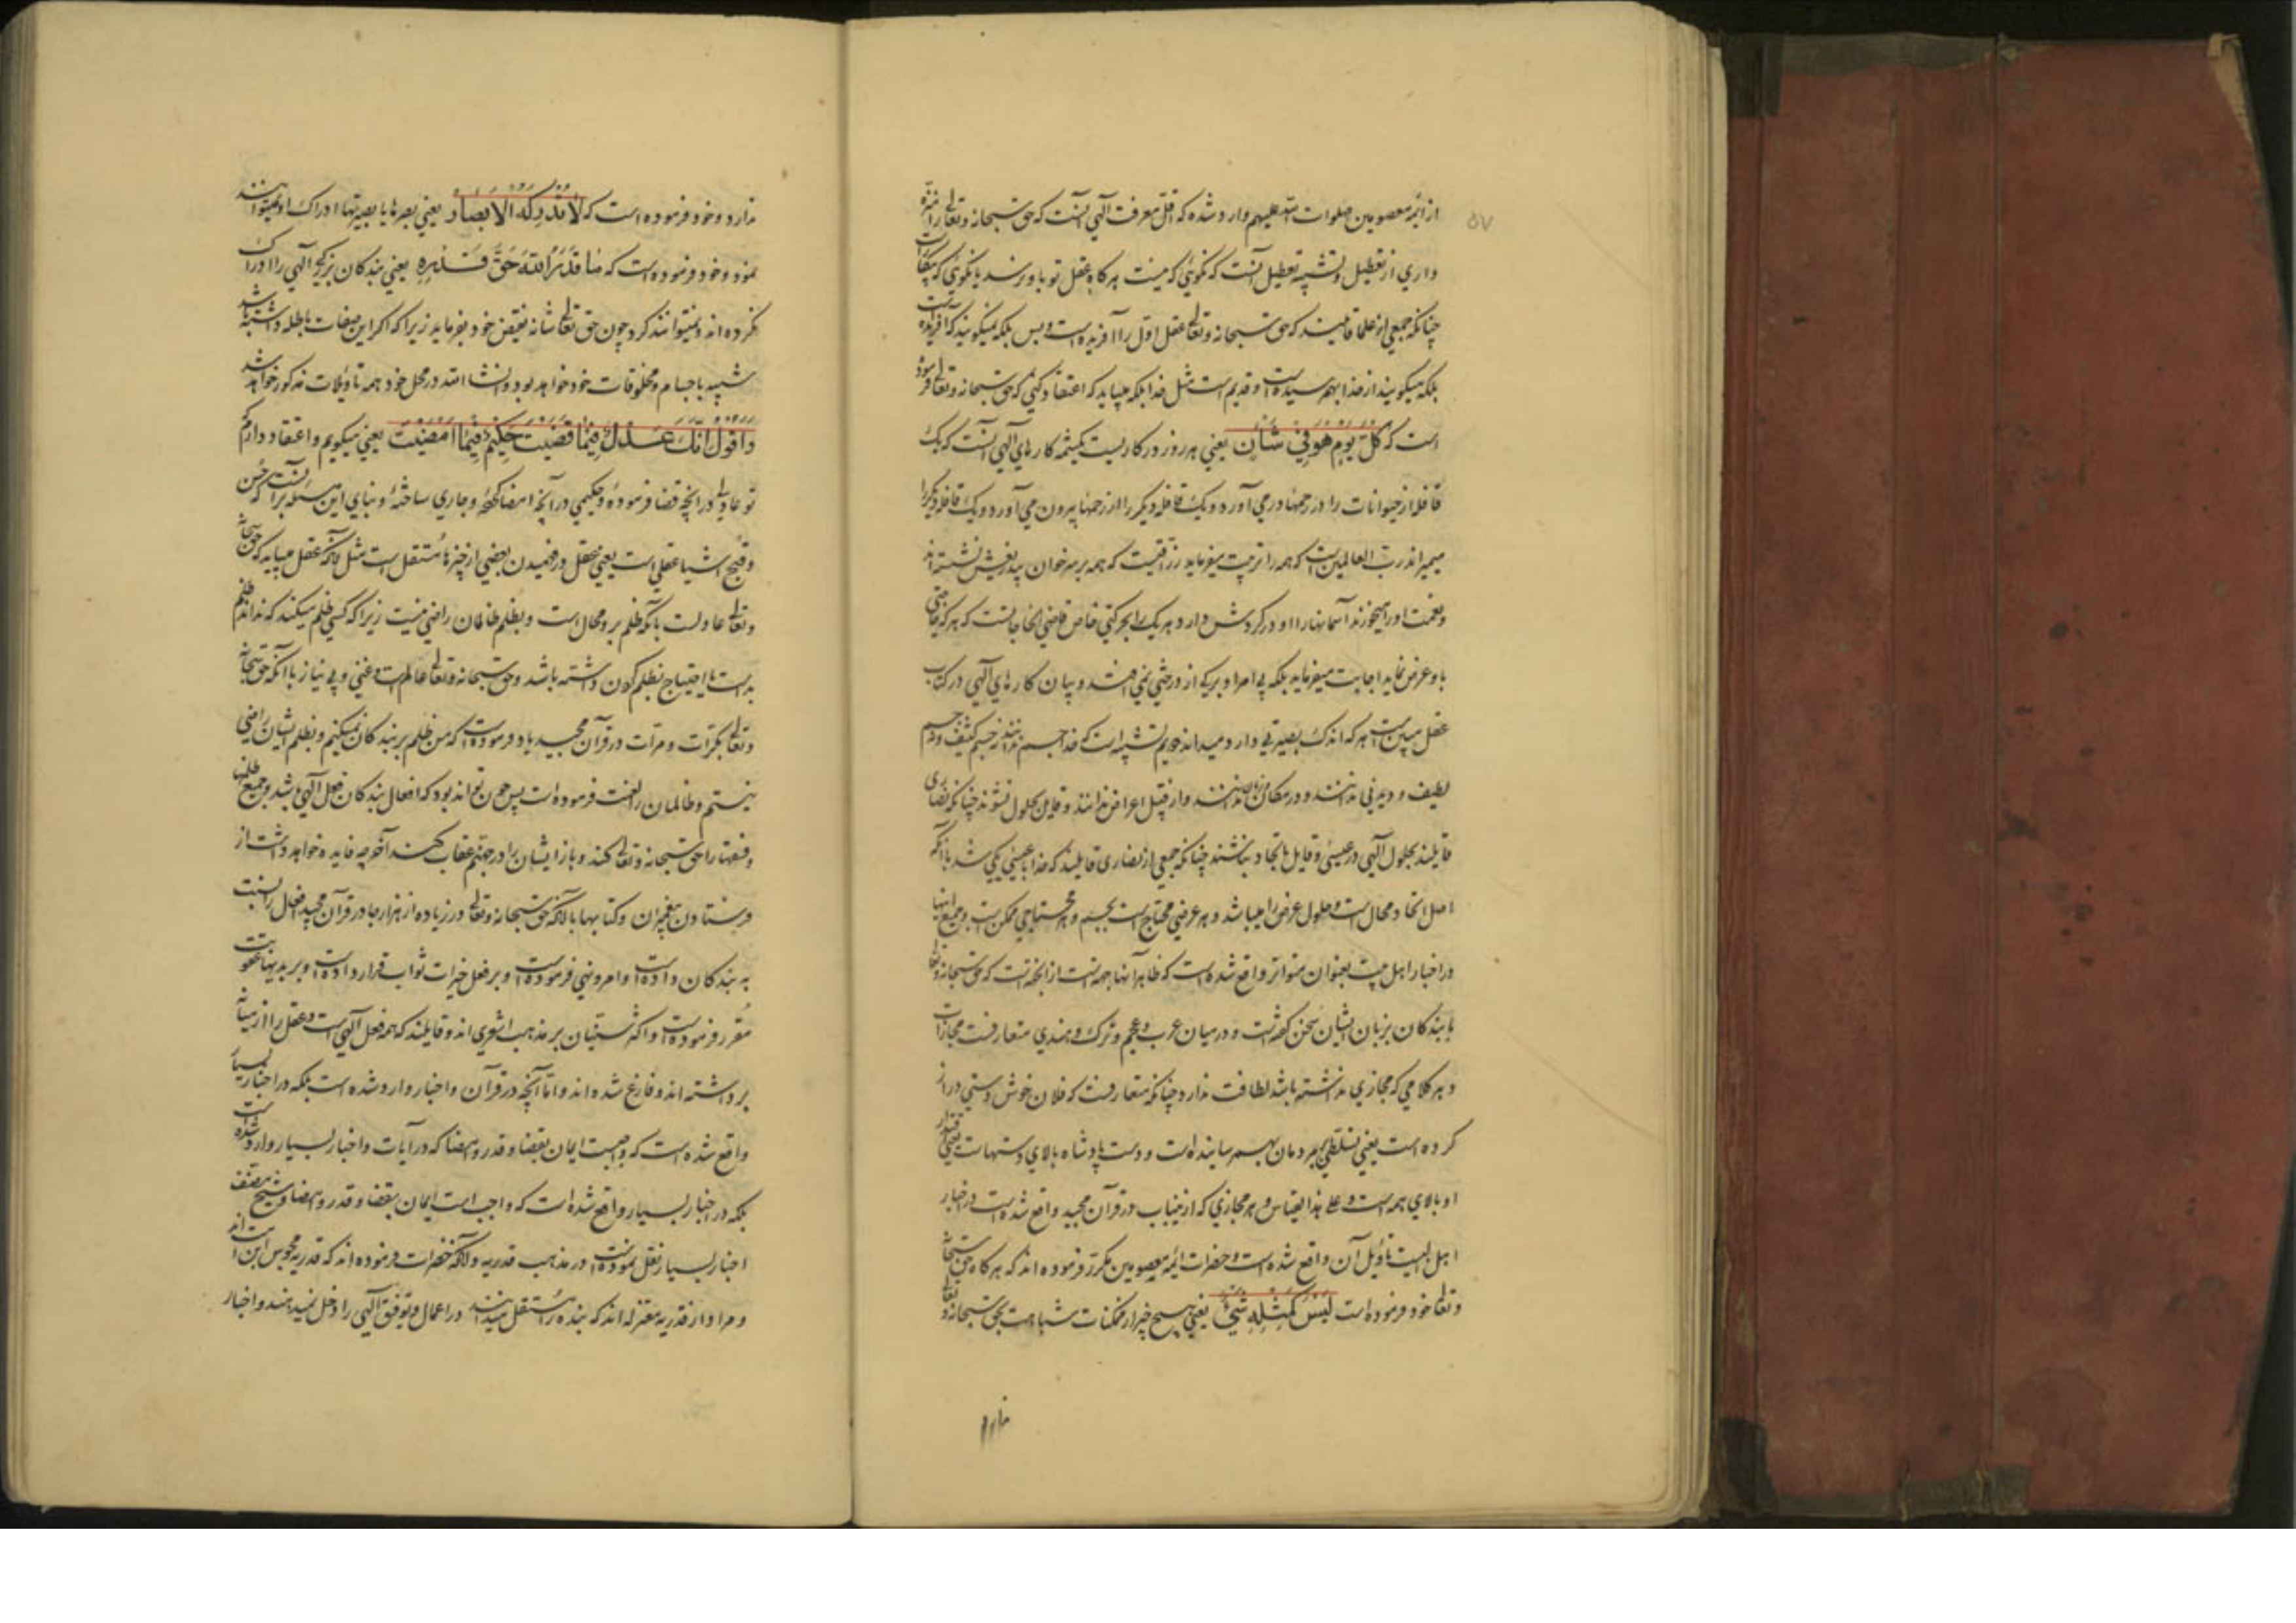 از ائمه معصومین صلوات الله علیهم وارد شده که اقل معرفت الهی آنست که حق سبحانه و تعالی را منزه
داری از تعطیل و تشبیه تعطیل آنست که نگوئی که نیست هر گاه عقل تو باو نرسد یا نگوئی که بیکار است
چنانکه جمعی از علما قایلند که حق سبحانه و تعالی عقل اول را آفریده است و بس بلکه نمیگویند که آفریده است
بلکه میگویند از خدا بهم رسیده است و قدیم است مثل خدا بلکه میباید که اعتقاد کنی که حق سبحانه و تعالی فرموده
است که كُلَّ يَوْمٍ هُوَ فِي شَأْنٍ یعنی هر روز در کاریست یکیش کارهای الهی آنست که یک
قافله از حیوانات را در رحمها در می آورد و یک قافله دیگر را از رحمها بیرون می آورد و یک قافله دیگر را
میمیراند رب العالمین است که همه را تربیت میفرماید رزاقیست که همه بر سر خوان نشسته اند
و نعمت او را میخورند آسمانها را او در گردش دارد هر یک را بحرکتی خاص قاضی الحاجاتست که هر که حاجتی
باو عرض نماید اجابت میفرماید بلکه بی امر او برگی از درختی نمی افتد و بیان کارهای الهی در کتاب
عقل مبین است هر که اندک بصیرتی دارد میداند دویم تشبیه است که خدا را جسم ندانند نه جسم کثیف و نه جسم
لطیف و دیدنی ندانند و در مکان ندانند و از قبیل اعراض ندانند و قایل بحلول نشوند چنانکه نصاری
قایلند بحلول الهی در عیسی و قایل باتحاد نباشند چنانکه جمعی از نصاری قایلند که خدا با عیسی یکی شد با آنکه
اصل اتحاد محال است و حلول عرض را میباشد و هر عرضی محتاج است بجسم و هر محتاجی ممکن است و جمیع اینها
در اخبار اهل بیت بعنوان متواتر واقع شده است که ظاهر آنها از آنجهتست که حق سبحانه و تعالی
با بندگان بزبان ایشان سخن گفته است و در میان عرب و عجم و ترک و هندی متعارفست مجازات
و هر کلامی که مجازی نداشته باشد لطافت ندارد چنانکه متعارفست که فلان خوش دستی دراز
کرده است یعنی تسلطی بر مردمان بهم رسانیده است و دست پادشاه بالای دستهاست یعنی قدرت
او بالای همه است و علی هذا القیاس و هر مجازی که ازینباب در قرآن مجید واقع شده است در اخبار
اهل البیت تأویل آن واقع شده است و حضرات ائمه معصومین مکرر فرموده اند که هر گاه حق سبحانه
و تعالی خود فرموده است لَيْسَ كَمِثْلِهِ شَيْءٌ یعنی هیچ چیز از ممکنات شباهت بحق سبحانه و تعالی
ندارد
ندارد و خود فرموده است که لَا تُدْرِكُهُ الْأَبْصَارُ یعنی بصرها یا بصیرتها ادراک او نمیتوانند
نمود و خود فرموده است که مَا قَدَرُوا اللَّهَ حَقَّ قَدْرِهِ یعنی بندگان بزرگی الهی را ادراک
نکرده اند و نمیتوانند کرد چون حق تعالی شانه نقیض خود بفرماید زیرا که اگر این صفات باطله داشته باشد
شبیه باجسام و مخلوقات خود خواهد بود و انشاء الله در محل خود همه تاویلات مذکور خواهد شد
وَأَقُولُ إِنَّكَ عَدْلٌ فِيمَا قَضَيْتَ حَكِيمٌ فِيمَا أَمْضَيْتَ یعنی میگویم و اعتقاد دارم که
تو عادلی در آنچه قضا فرمودۀ و حکیمی در آنچه امضا کردۀ و جاری ساختۀ و بنای این مسئله بر آنست که حسن
و قبح اشیا عقلی است یعنی عقل در فهمیدن بعضی از چیزها مستقل است مثل آنکه عقل مییابد که حق سبحانه
و تعالی عادلست با آنکه ظلم بر او محال است و بظلم ظالمان راضی نیست زیرا که کسی ظلم میکند که نداند ظلم
بد است یا احتیاج بظلم کردن داشته باشد و حق سبحانه و تعالی عالم است و غنی و بی نیاز با آنکه حق سبحانه
و تعالی بکرات و مرات در قرآن مجید یاد فرموده است که من ظلم بر بندگان نمیکنم و بظلم ایشان راضی
نیستم و ظالمان را لعنت فرموده است پس چون تواند بود که افعال بندگان فعل الهی باشد و جمیع ظلمها
و فسقها را حق سبحانه و تعالی کند و باز ایشان را در جهنم عقاب کند آخر چه فایده خواهد داشت از
فرستادن پیغمبران و کتابها با آنکه حق سبحانه و تعالی در زیاده از هزار جا در قرآن مجید افعال را نسبت
به بندگان داده است و امر و نهی فرموده است و بر فعل خیرات ثواب قرار داده است و بر بدیها عقوبت
مقرر فرموده است و اکثر سنیان بر مذهب اشعری اند و قایلند که همه فعل الهی است و عقل را از میانه
برداشته اند و فارغ شده اند و اما آنچه در قرآن و اخبار وارد شده است بلکه در اخبار بسیار
واقع شده است که واجبست ایمان بقضا و قدر و امضا که در آیات و اخبار بسیار وارد شده است
بلکه در اخبار بسیار واقع شده است که واجب است ایمان بقضا و قدر و امضا و شیخ مصنف
اخبار بسیار نقل نموده است در مذهب قدریه و آنکه حضرات فرموده اند که قدریه مجوس این امت اند
و مراد از قدریه معتزله اند که بنده را مستقل میدانند در اعمال و توفیق الهی را دخل نمیدهند و اخبار